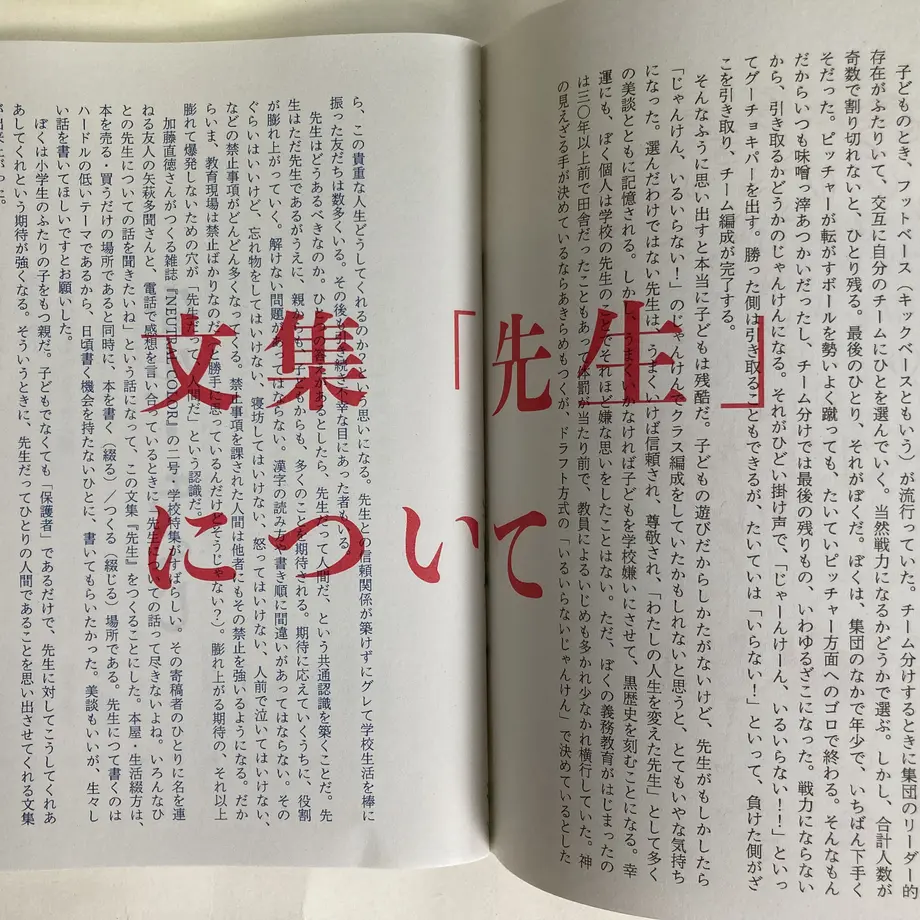 文集「先生」
について
子どものとき、フットベース（キックベースともいう）が流行っていた。チーム分けするときに集団のリーダー的
存在がふたりいて、交互に自分のチームにひとを選んでいく。当然戦力になるかどうかで選ぶ。しかし、合計人数が
奇数で割り切れないと、ひとり残る。最後のひとり、それがぼくだ。ぼくは、集団のなかで年少で、いちばん下手く
そだった。ピッチャーが転がすボールを勢いよく蹴っても、たいていピッチャー方面へのゴロで終わる。そんなもん
だからいつも味噌っ滓あつかいだったし、チーム分けでは最後の残りもの、いわゆるざこになった。戦力にならない
から、引き取るかどうかのじゃんけんになる。それがひどい掛け声で、「じゃーんけーん、いるいらない！」といっ
てグーチョキパーを出す。勝った側は引き取ることもできるが、たいていは「いらない！」といって、負けた側がざ
こを引き取り、チーム編成が完了する。
そんなふうに思い出すと本当に子どもは残酷だ。子どもの遊びだからしかたがないけど、先生がもしかしたら
「じゃんけん、いるいらない！」のじゃんけんでクラス編成をしていたかもしれないと思うと、とてもいやな気持ち
になった。選んだわけではない先生は、うまくいけば信頼され、尊敬され、「わたしの人生を変えた先生」として多く
の美談とともに記憶される。しかし、うまくいかなければ子どもを学校嫌いにさせて、黒歴史を刻むことになる。幸
運にも、ぼく個人は学校の先生のことでそれほど嫌な思いをしたことはない。ただ、ぼくの義務教育がはじまったの
は三〇年以上前で田舎だったこともあって体罰が当たり前で、教員によるいじめも多かれ少なかれ横行していた。神
の見えざる手が決めているならあきらめもつくが、ドラフト方式の「いるいらないじゃんけん」で決めているとした
ら、この貴重な人生どうしてくれるのか？という思いになる。先生との信頼関係が築けずにグレて学校生活を棒に
振った友だちは数多くいる。その後も引き続き不幸な目にあった者もいる。
先生はどうあるべきなのか。ひとつの答えがあるとしたら、先生だって人間だ、という共通認識を築くことだ。先
生はただ先生であるがうえに、親からも子どもからも、多くのことを期待される。期待に応えていくうちに、役割
が膨れ上がっていく。解けない問題があってはならない。漢字の読み方や書き順に間違いがあってはならない。その
ぐらいはいいけど、忘れ物をしてはいけない、寝坊してはいけない、怒ってはいけない、人前で泣いてはいけない、
などの禁止事項がどんどん多くなってくる。禁止事項を課された人間は他者にもその禁止を強いるようになる。だか
らいま、教育現場は禁止ばかりなのだ（と勝手に思っているんだけどそうじゃない？）。膨れ上がる期待の、それ以上
膨れて爆発しないための穴が「先生だって、人間だ」という認識だ。
加藤直徳さんがつくる雑誌『NEUTRAL COLORS』の二号・学校特集がすばらしい。その寄稿者のひとりに名を連
ねる友人の矢萩多聞さんと、電話で感想を言い合っているときに「先生についての話って尽きないよね。いろんなひ
との先生についての話を聞きたいね」という話になって、この文集『先生』をつくることにした。本屋・生活綴方は、
本を売る・買うだけの場所であると同時に、本を書く（綴る）／つくる（綴じる）場所である。先生について書くのは
ハードルの低いテーマであるから、日頃書く機会を持たないひとに、書いてもらいたかった。美談もいいが、生々し
い話を書いてほしいですとお願いした。
ぼくは小学生のふたりの子をもつ親だ。子どもでなくても「保護者」であるだけで、先生に対してこうしてくれあ
あしてくれという期待が強くなる。そういうときに、先生だってひとりの人間であることを思い出させてくれる文集
が出来上がった。